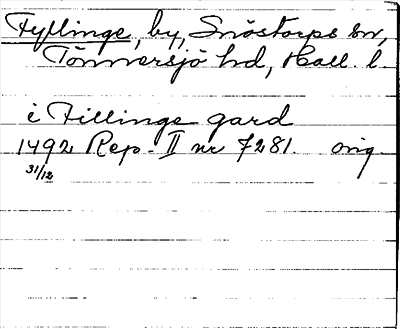 Fyllinge, by, Snöstorps sn,
Tönnersjö hd, Hall. l
i Fillinge gard
1492 Rep. II nr 7281. orig.
31/12